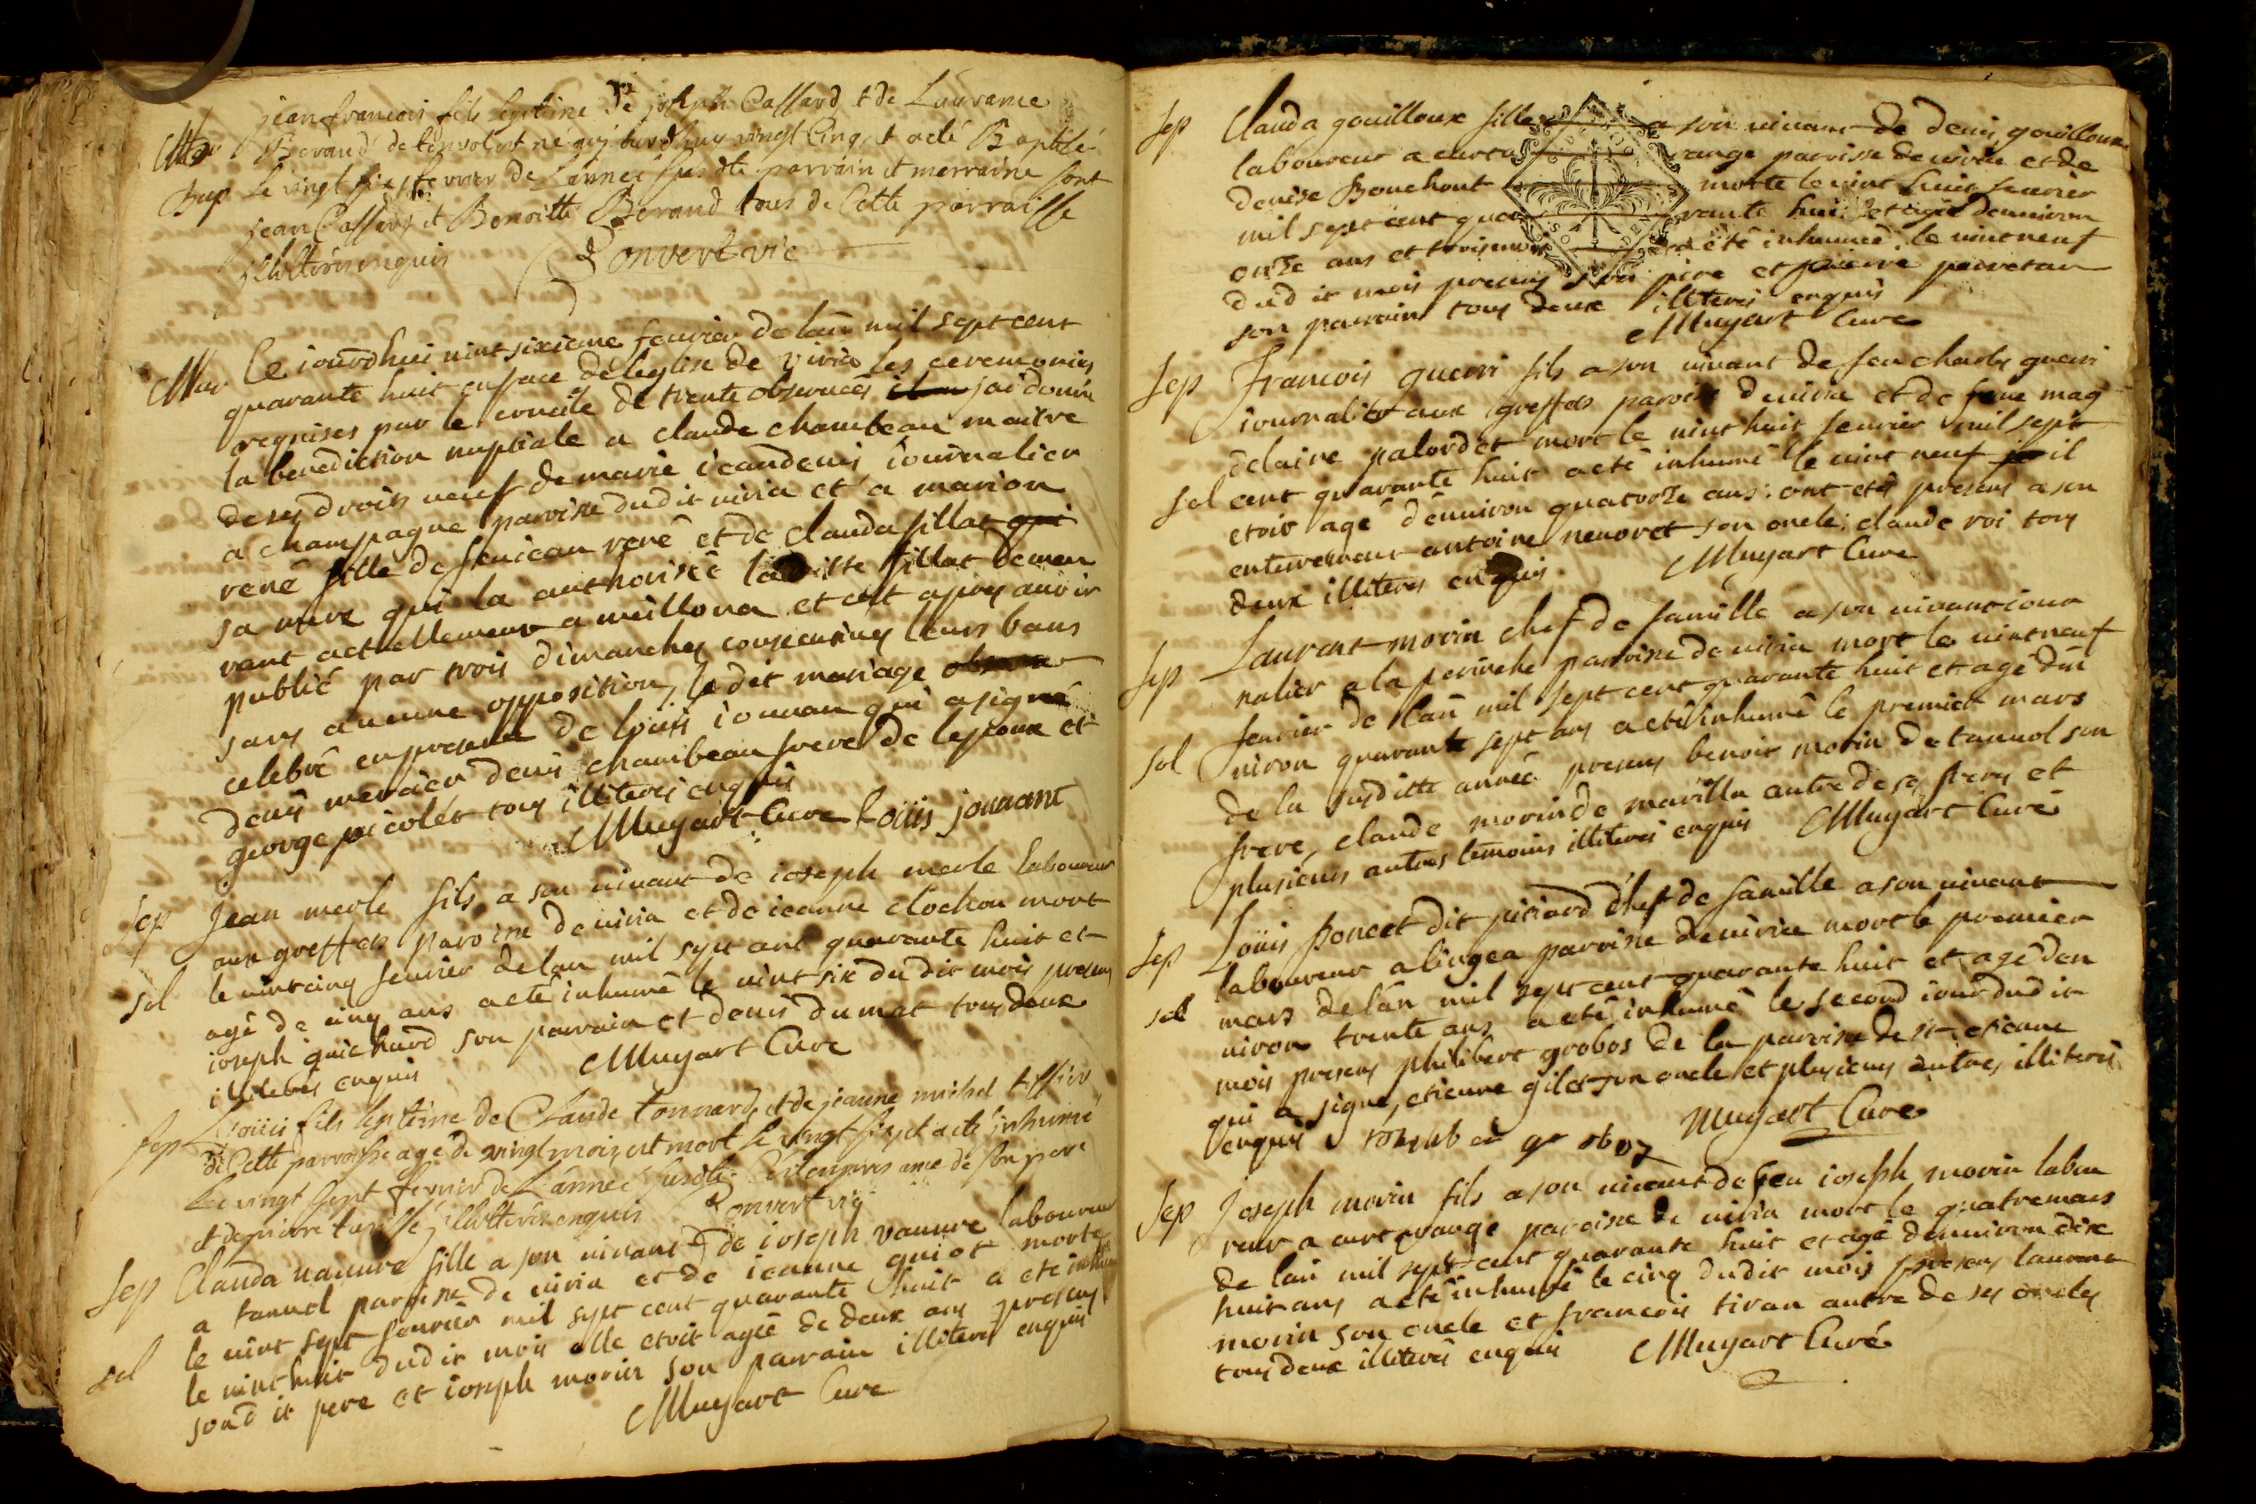 jean francois fils legitime de joseph Cassard & de Laurance
Bap Berand de tenvol est né aujourdhuy vingt Cinq et a eté Baptisé
le vingt six fevrier de Lannee susdite parrain et marraine sont
jean Cassard et Benoitte Berand tous de Cette parroisse
illitéres enquis Convert vic
Mar le iourdhui vint sixieme feurier de lan mil sept cent
quarante huit en face de leglise de viria les ceremonies
requises par le concile de trente obseruées jai donné
la benediction nuptiale a claude chambeau maitre
de ses droits veuf de marie ieandenis iournalier
a champagne paroisse dudit viria et a marion
rené fille de feu iean rené et de clauda fillat qui
sa mere qui la authorisée laditte fillat demeu
rant actuellement a meillona et cest apres auoir
publié par trois dimanches consecutives leurs bans
sans aucune opposition, le dit mariage
celebré en presence de loüis iouuan qui a signé
denis mercier denis chambeau frere de lepoux et
george nicolet tous illiteres enquis
Muyart Curé Loüis jouuant
Sep Jean merle fils a son uiuant de ioseph merle laboureur
aux greffets paroisse de uiria et de ieanne clochon mort
sol le uint cinq feurier de lan mil sept cent quarante huit et
agé de cinq ans a eté inhumé le uint six du dit mois presens
ioseph guichard son parrain et denis dumat tous deux
illiteres enquis Muyart Cure
Sep Loüis fils legitime de Claude tonnard et de jeanne michel tissier
de Cette parroisse agé de vingt mois est mort le vingt six et a eté inhumé
Le vingt sept fevrier de Lannée susdite de son pere
et de pierre illitéres enquis Convert vic
Sep Clauda uauure fille a son uiuant de ioseph vauure laboureur
a tanuol paroisse de uiria et de ieanne guiot morte
le uint sept feurier mil sept cent quarante huit a eté inhumée
sol le uint huit dudit mois elle etoit agée de deux ans presens
soud it pere et ioseph morin son parrain illiteres enquis
Muyart Cure
Sep Clauda gouilloux fille a son uiuant de denis gouilloux
laboureur a curta range paroisse de uiria et de
denise Bouchout morte le uint huit feurier
mil sept cent quarante huit et agée denuiron
onze ans et trois mois a été inhumée le uint neuf
dud it mois presens son pere et pierre
son parrain tous deux illiteres enquis
Muyart Cure
Sep Francois guerri fils a son uiuant de feu charles guerri
iournalier aux greffets paroisse de uiria et de feue mag
delaine palordet mort le uint huit feurier mil sept
sol cent quarante huit a eté inhumé le uint neuf il
etoit agé denuiron quatorze ans: ont etés presens a son
enterrement antoine neuoret son oncle; claude roi tous
deux illiteres enquis. Muyart Cure
Sep Laurent morin chef de famille a son uiuant iour
nalier a la peruche paroisse de uiria mort le uint neuf
feurier de lan mil sept cent quarante huit et agé den
sol uiron quarante sept ans a eté inhumé le premier mars
de la susditte année presens benoit morin de tanuol son
frere, claude morin de marilla autre de ses freres et
plusieurs autres temoins illiteres enquis Muyart Curé
Sep Loüis poncet dit pisiard chef de famille a son uiuant
laboureur a lingea paroisse de uiria mort le premier
sol mars de lan mil sept cent quarante huit et agé den
uiron trente ans a eté inhumé le second iour dudit
mois presens philibert grobos de la paroisse de st etienne
qui a signé, etienne gilet son oncle et plusieurs autres illiteres
enquis Muyart Cure
Sep Joseph morin fils a son uiuant de feu ioseph morin labou
reur a curtarange paroisse de uiria mort le quatre mars
de lan mil sept cent quarante huit et agé denuiron dix
huit ans a eté inhumé le cinq dudit mois presens laurent
morin son oncle et francois tiran autre de ses oncles
tous deux illiteres enquis Muyart Curé